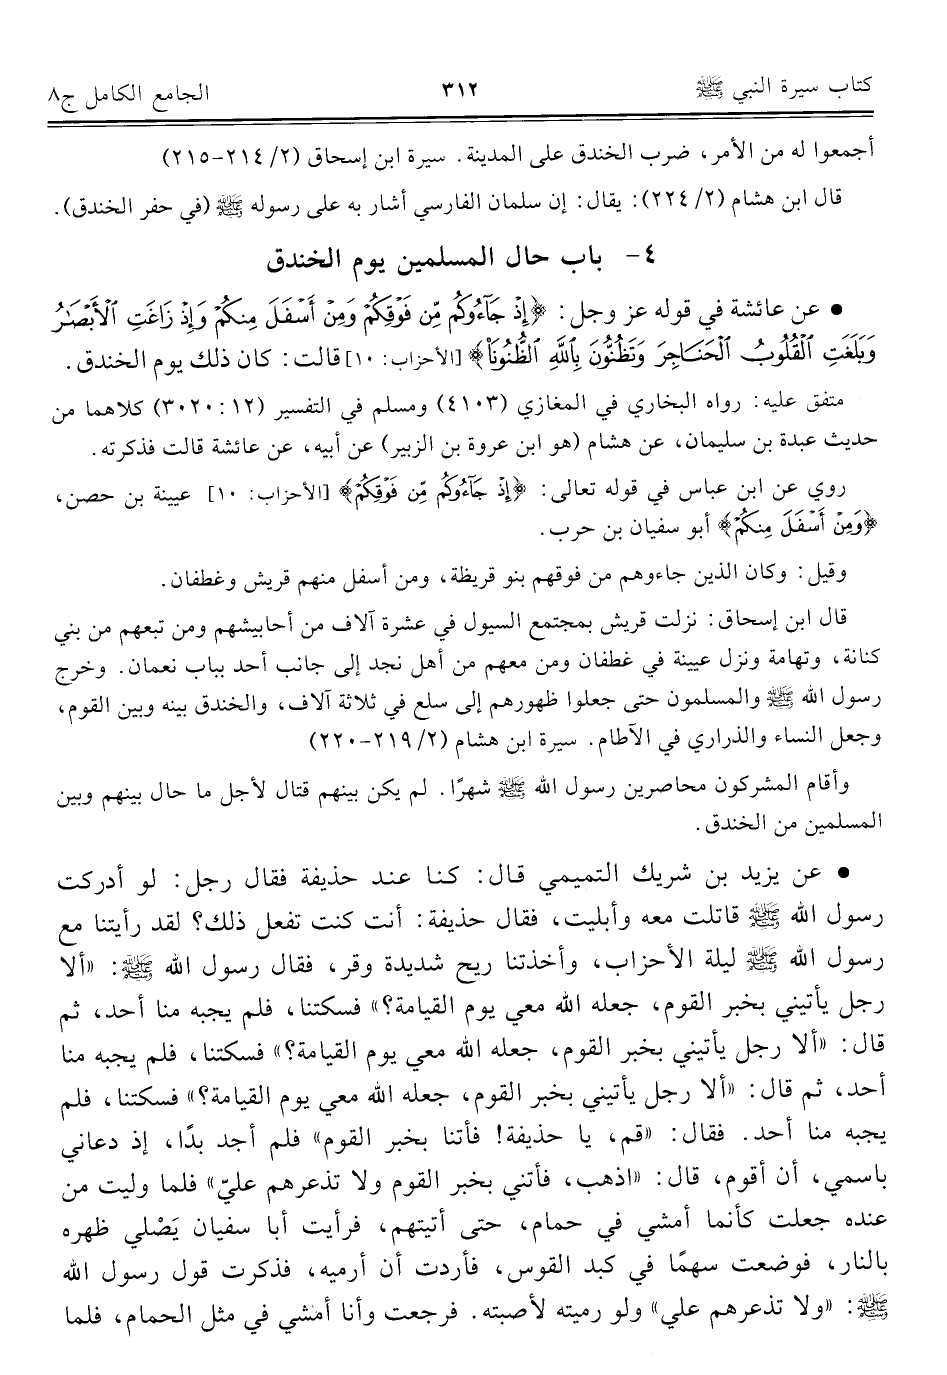 كتاب سيرة النبي ﷺ ٣١٢ الجامع الكامل ج٨
أجمعوا له من الأمر، ضرب الخندق على المدينة. سيرة ابن إسحاق (٢/ ٢١٤-٢١٥)
قال ابن هشام (٢/ ٢٢٤): يقال: إن سلمان الفارسي أشار به على رسوله ﷺ (في حفر الخندق).
٤- باب حال المسلمين يوم الخندق
• عن عائشة في قوله عز وجل: ﴿إِذْ جَآءُوكُم مِّن فَوْقِكُمْ وَمِنْ أَسْفَلَ مِنكُمْ وَإِذْ زَاغَتِ ٱلْأَبْصَـٰرُ
وَبَلَغَتِ ٱلْقُلُوبُ ٱلْحَنَاجِرَ وَتَظُنُّونَ بِٱللَّهِ ٱلظُّنُونَا۠﴾ [الأحزاب: ١٠] قالت: كان ذلك يوم الخندق.
متفق عليه: رواه البخاري في المغازي (٤١٠٣) ومسلم في التفسير (٣٠٢٠:١٢) كلاهما من
حديث عبدة بن سليمان، عن هشام (هو ابن عروة بن الزبير) عن أبيه، عن عائشة قالت فذكرته.
روي عن ابن عباس في قوله تعالى: ﴿إِذْ جَآءُوكُم مِّن فَوْقِكُمْ﴾ [الأحزاب: ١٠] عيينة بن حصن،
﴿وَمِنْ أَسْفَلَ مِنكُمْ﴾ أبو سفيان بن حرب.
وقيل: وكان الذين جاءوهم من فوقهم بنو قريظة، ومن أسفل منهم قريش وغطفان.
قال ابن إسحاق: نزلت قريش بمجتمع السيول في عشرة آلاف من أحابيشهم ومن تبعهم من بني
كنانة، وتهامة ونزل عيينة في غطفان ومن معهم من أهل نجد إلى جانب أحد بباب نعمان. وخرج
رسول الله ﷺ والمسلمون حتى جعلوا ظهورهم إلى سلع في ثلاثة آلاف، والخندق بينه وبين القوم،
وجعل النساء والذراري في الآطام. سيرة ابن هشام (٢/ ٢١٩-٢٢٠)
وأقام المشركون محاصرين رسول الله ﷺ شهرًا. لم يكن بينهم قتال لأجل ما حال بينهم وبين
المسلمين من الخندق.
• عن يزيد بن شريك التميمي قال: كنا عند حذيفة فقال رجل: لو أدركت
رسول الله ﷺ قاتلت معه وأبليت، فقال حذيفة: أنت كنت تفعل ذلك؟ لقد رأيتنا مع
رسول الله ﷺ ليلة الأحزاب، وأخذتنا ريح شديدة وقر، فقال رسول الله ﷺ: «ألا
رجل يأتيني بخبر القوم، جعله الله معي يوم القيامة؟» فسكتنا، فلم يجبه منا أحد، ثم
قال: «ألا رجل يأتيني بخبر القوم، جعله الله معي يوم القيامة؟» فسكتنا، فلم يجبه منا
أحد، ثم قال: «ألا رجل يأتيني بخبر القوم، جعله الله معي يوم القيامة؟» فسكتنا، فلم
يجبه منا أحد. فقال: «قم، يا حذيفة! فأتنا بخبر القوم» فلم أجد بدًا، إذ دعاني
باسمي، أن أقوم، قال: «اذهب، فأتني بخبر القوم ولا تذعرهم عليّ» فلما وليت من
عنده جعلت كأنما أمشي في حمام، حتى أتيتهم، فرأيت أبا سفيان يَصْلي ظهره
بالنار، فوضعت سهمًا في كبد القوس، فأردت أن أرميه، فذكرت قول رسول الله
ﷺ: «ولا تذعرهم علي» ولو رميته لأصبته. فرجعت وأنا أمشي في مثل الحمام، فلما